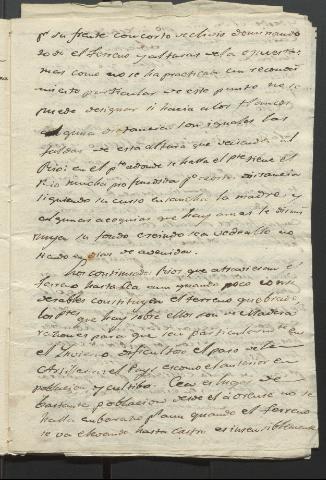 pr su frente con corto declivio dominando
todo el terreno y alturas de la opuesta
mas como no se ha practicado un reconoci
miento particular de este punto no se
puede designar si hacia a los flancos
alguna distancia son iguales las
faldas de esta altura que
Rio en el pte adonde se halla el pte tiene el
Rio mucha profundidad pr corta distancia
siguiendo su curso ensancha la madre y
algunas acequias que hay amas le dismi
nuyen su fondo siendo vadeable no
siendo en dias de avenidas.
Los continuados Rios que atraviesan el
terreno hasta aun quando poco consi
derables constituyen el terreno quebrado
los ptes que hay sobre ellos son de Madera
razones para que sea particularmte en
el Invierno dificultoso el paso de la
Artilleria, el Pays es como el anterior en
poblacion y cultibo. Lea es lugar de
bastante poblacion desde el a Orense no se
halla embarazo pr aun quando el terreno
se va elevando hasta Castro es insensiblemente